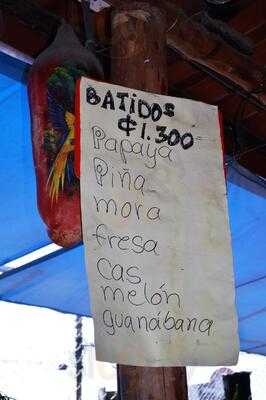 BATIDOS
₡1.300
Papaya
Piña
mora
fresa
cas
melón
guanábana